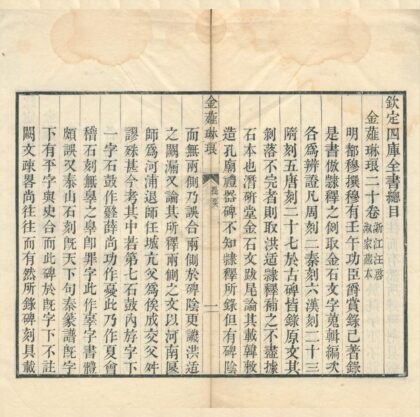 欽定四庫全書總目
金薤琳琅二十卷浙江汪啓淑家藏本
明都穆撰穆有壬午功臣爵賞錄已著錄
是書倣隸釋之例取金石文字蒐輯編次
各爲辨證凡周刻二秦刻六漢刻二十三
隋刻五唐刻二十七於古碑皆錄原文其
剝落不完者則取洪适隸釋補之不盡據
石本也潛硏堂金石文跋尾論其載韓敕
造孔廟禮器碑不知隸釋所錄但有碑陰
金薤琳琅
提要
一
而無兩側乃誤合兩側於碑陰更譏洪适
之闕漏又論其所釋兩側之文以河南匽
師爲河浦退師任城亢父爲俟成交父舛
謬殊甚今考其中若第七石鼓內斿字下
一字石鼓作薛尚功作憂此乃作夏會
稽石刻無辠之辠卽罪字此作辜字書體
頗誤又泰山石刻旣天下句泰篆譜旣字
下有平字與史合而此碑於旣字下不註
闕文疎畧尚往往而有然所錄碑刻具載